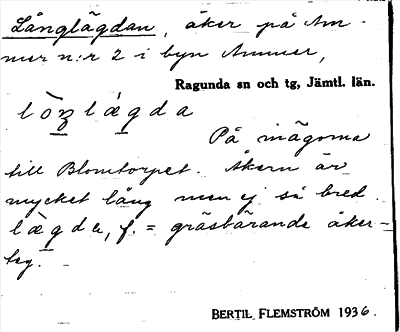 Långlägdan, åker på Am-
mer n:r 2 i byn Ammer,
Ragunda sn och tg, Jämtl. län.
lòŋlægda
På inägorna
till Blomtorpet. Åkern är
mycket lång men ej så bred.
lægda, f. = gräsbärande åker-
teg.
BERTIL FLEMSTRÖM 1936.